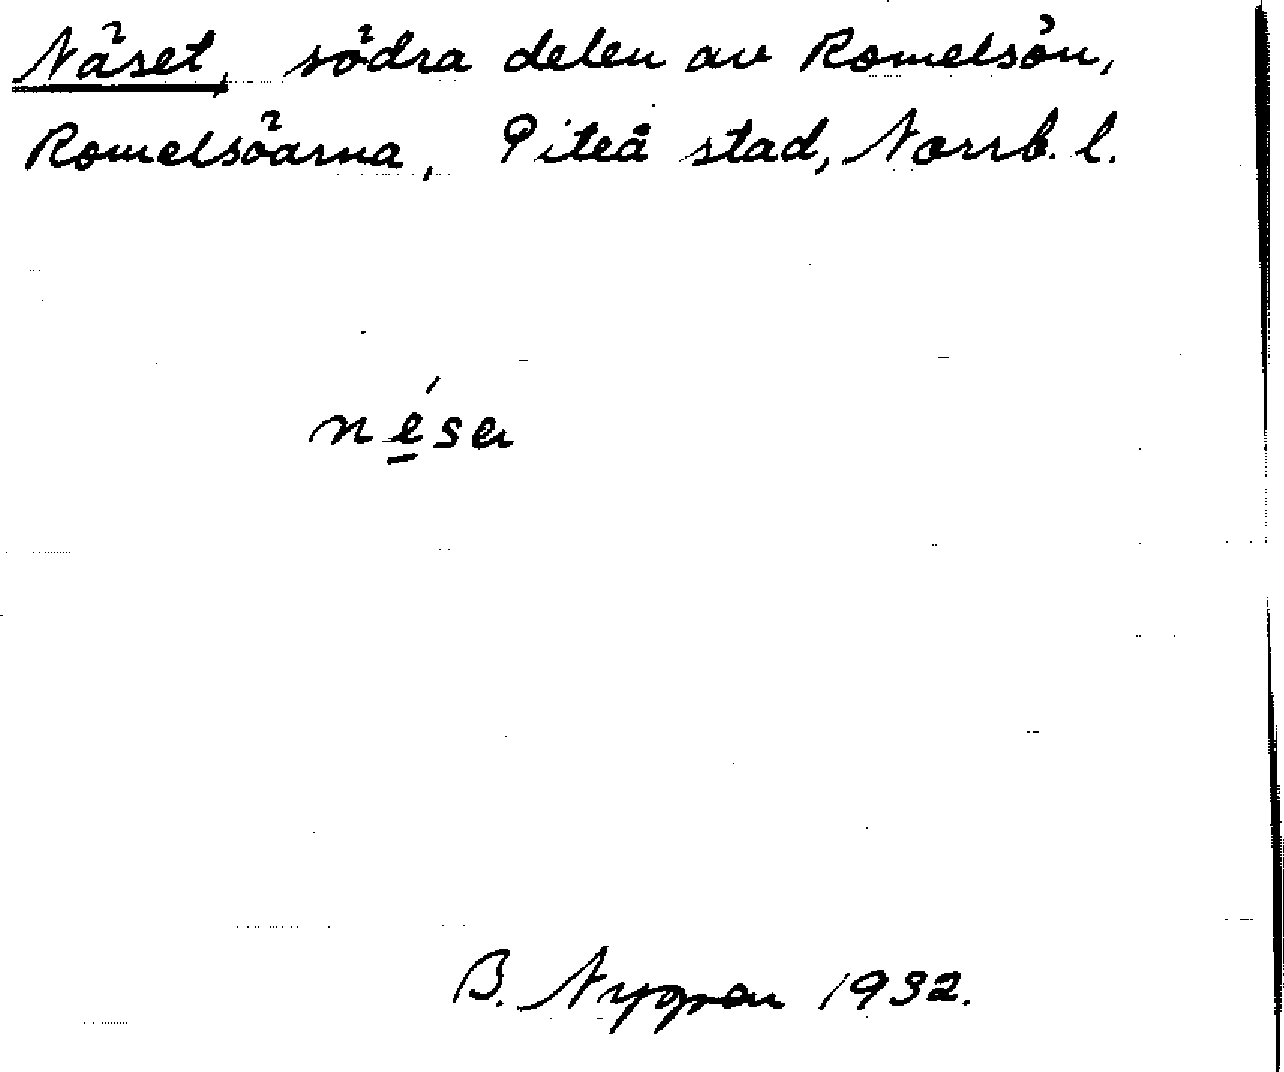 Näset, södra delen av Romelsön,
Romelsöarna, Piteå stad, Norrb. l.
né̱sa
B. Nygren 1932.